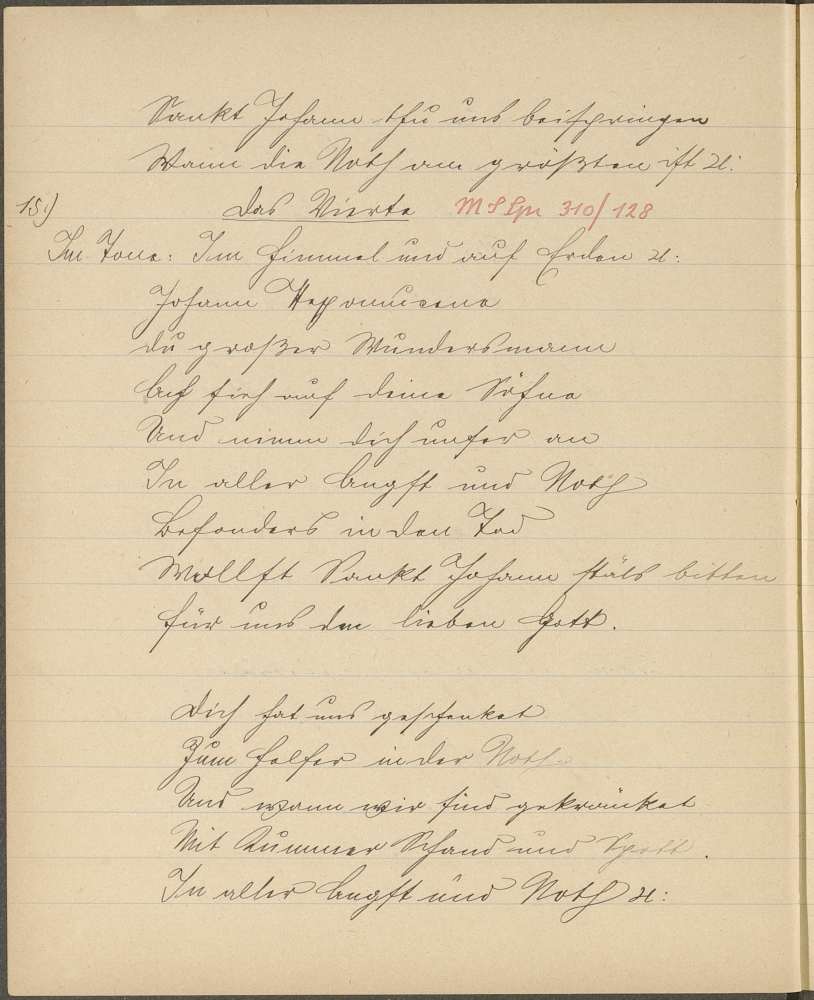 Sankt Johann thu uns beispringen
Wann die Noth am größten ist ꝛc:
15.) Das Vierte 310/128
Im Tone: Im Himmel und auf Erden ꝛc:
Johann Nepomucene
du großer Wundersmann
Ach sieh auf deine Söhne
Und nimm dich unser an
In aller Angst und Noth
Besonders in den Tod
Wollst Sankt Johann stäts bitten
für uns den lieben Gott.
dich hat uns geschenket
Zum Helfer in der Noth
Und wann wir sind gekränket
Mit Kummer Schand und Spott.
In aller Angst und Noth ꝛc: